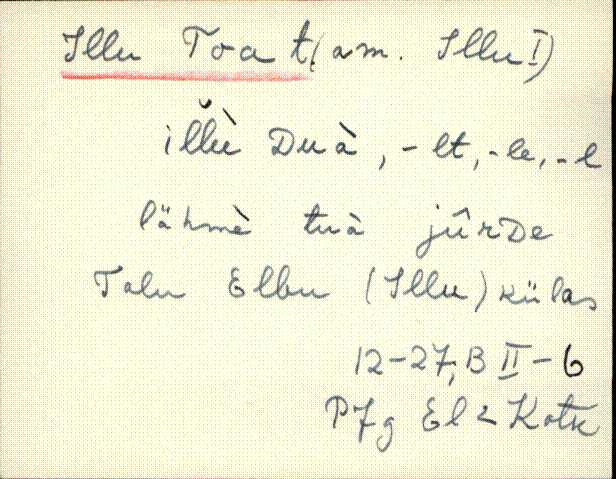 Illu Toa t. (am. Illu I)
illù Duà, -lt, -le, -l
lähmè tuà jûrDe
Talu Elbu (Illu) külas
12-27, B II-6
PJg El < Kotk